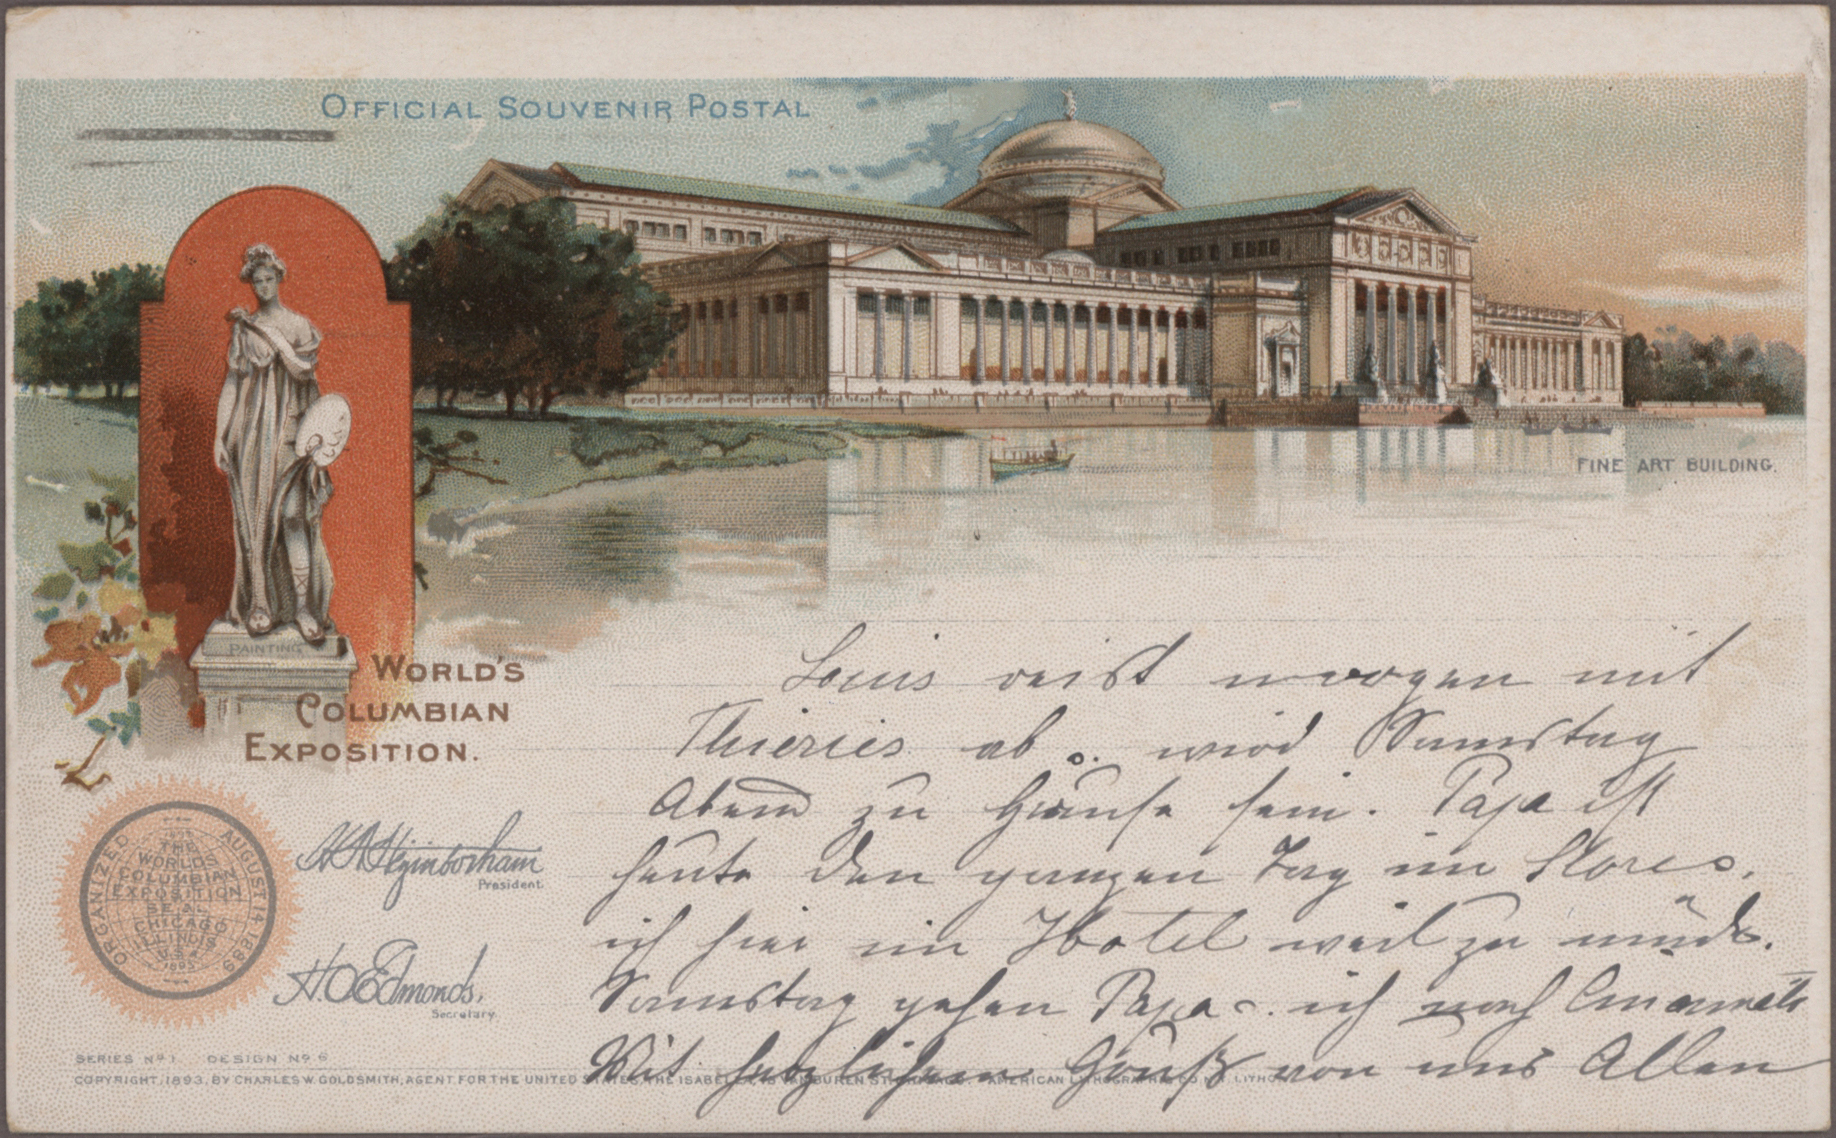 OFFICIAL SOUVENIR POSTAL
FINE ART BUILDING.
PAINTING
WORLD'S
COLUMBIAN
EXPOSITION.
Louis reist morgen mit
Thieries ab u. wird Samstag
Abend zu Hause sein. Papa ist
heute den ganzen Tag im Stores,
ich hier im Hotel weil zu müde.
Samstag gehen Papa u. ich nach
Mit herzlichem Gruß von uns Allen
ORGANIZED AUGUST 14 1889
THE
WORLDS
COLUMBIAN
EXPOSITION
SEAL
CHICAGO
ILLINOIS
U.S.A.
1893
H.N. Higinbotham
President.
H.O. Edmonds,
Secretary.
SERIES No 1. DESIGN No 6
COPYRIGHT, 1893, BY CHARLES W. GOLDSMITH, AGENT FOR THE UNITED STATES, THE ISABELLA, VAN BUREN ST. AMERICAN LITHOGRAPHIC CO. LITHO